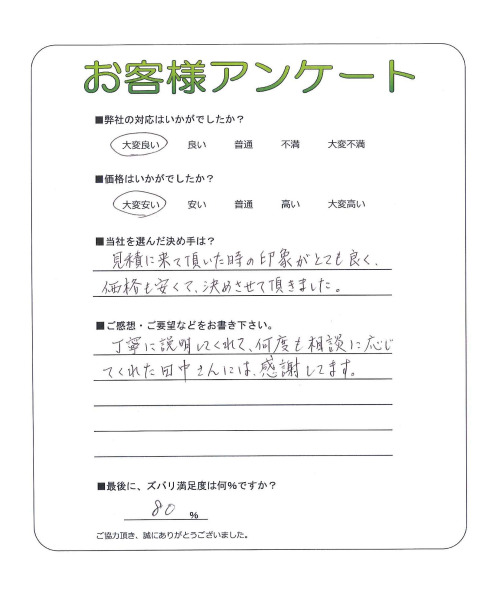 お客様アンケート
■弊社の対応はいかがでしたか？
大変良い 良い 普通 不満 大変不満
■価格はいかがでしたか？
大変安い 安い 普通 高い 大変高い
■当社を選んだ決め手は？
見積に来て頂いた時の印象がとても良く、
価格も安くて、決めさせて頂きました。
■ご感想・ご要望などをお書き下さい。
丁寧に説明してくれて、何度も相談に応じ
てくれた田中さんには、感謝してます。
■最後に、ズバリ満足度は何%ですか？
80 %
ご協力頂き、誠にありがとうございました。